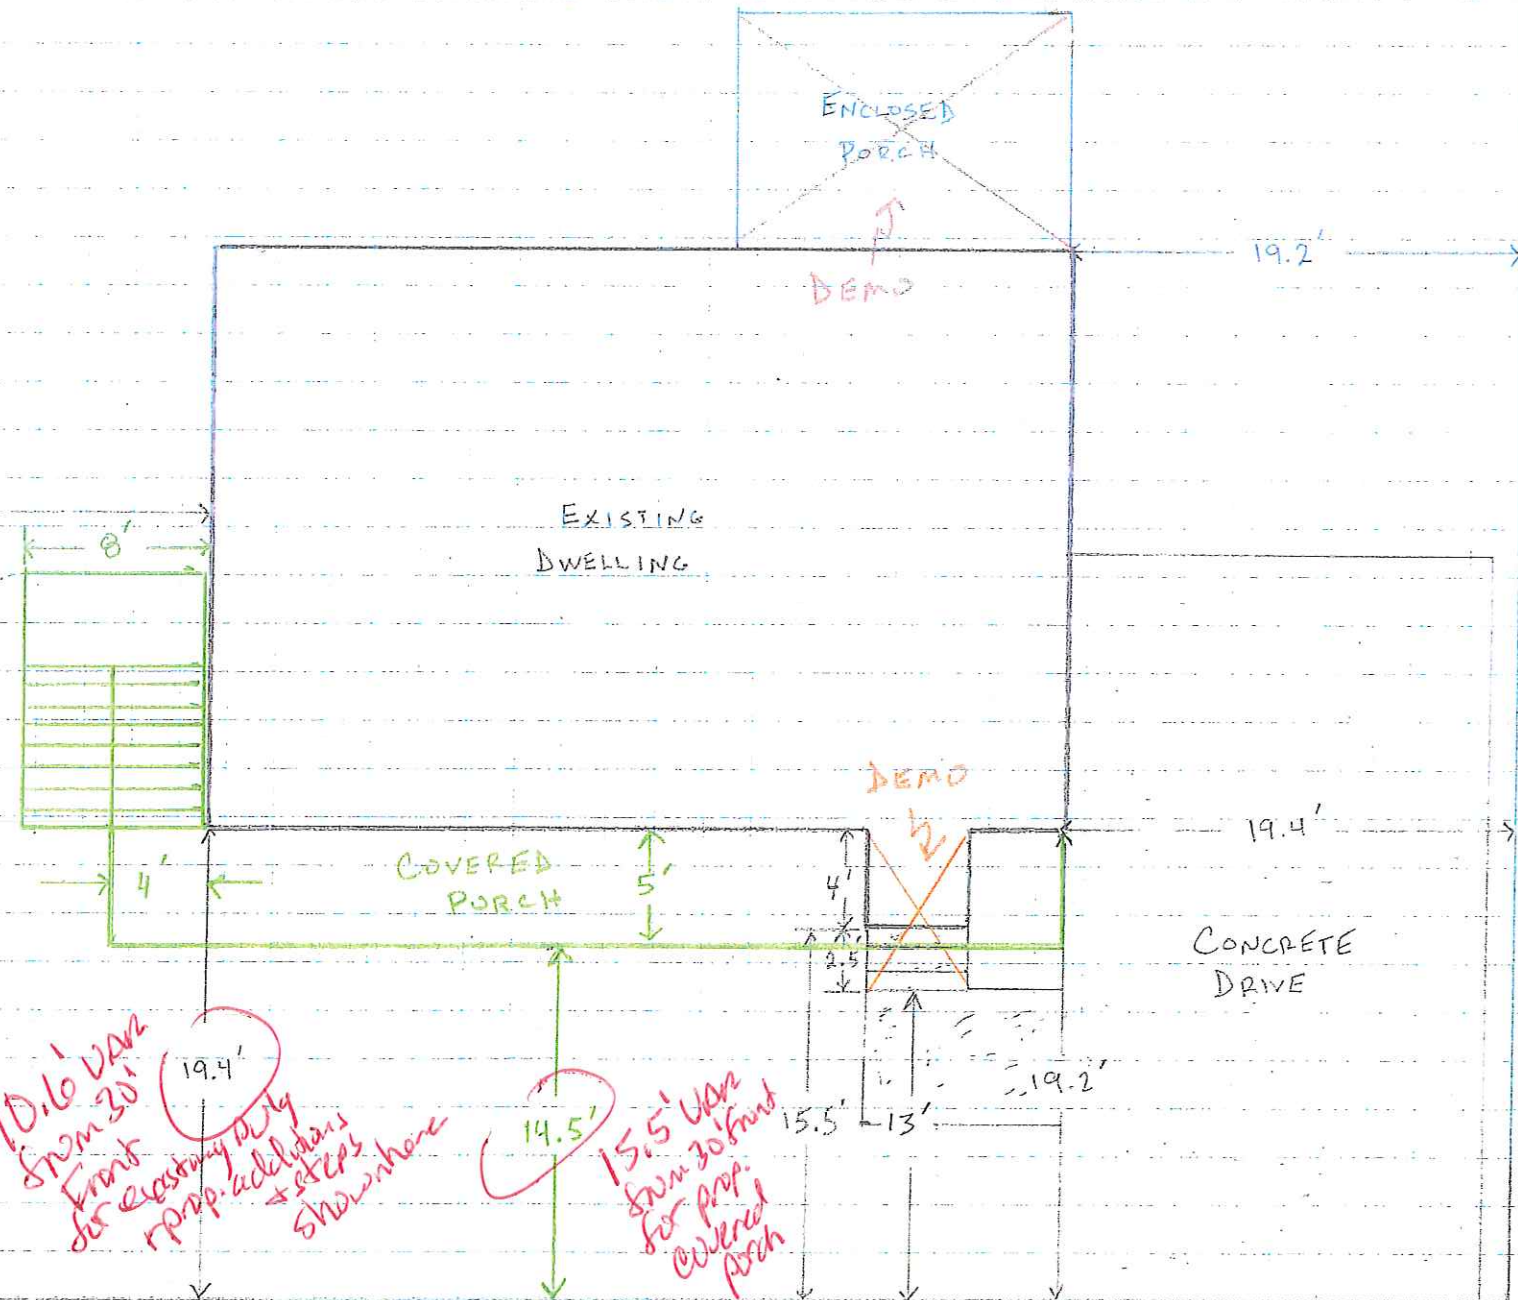 ENCLOSED
PORCH
DEMO
19.2'
EXISTING
DWELLING
8'
DEMO
19.4'
4'
COVERED
PORCH
5'
4'
2.5'
CONCRETE
DRIVE
19.4'
14.5'
15.5'
13'
19.2'
10.6' VAR
from 30'
Front
for existing
prop. additions
+ steps
shown here
15.5' VAR
from 30' front
for prop.
covered
porch